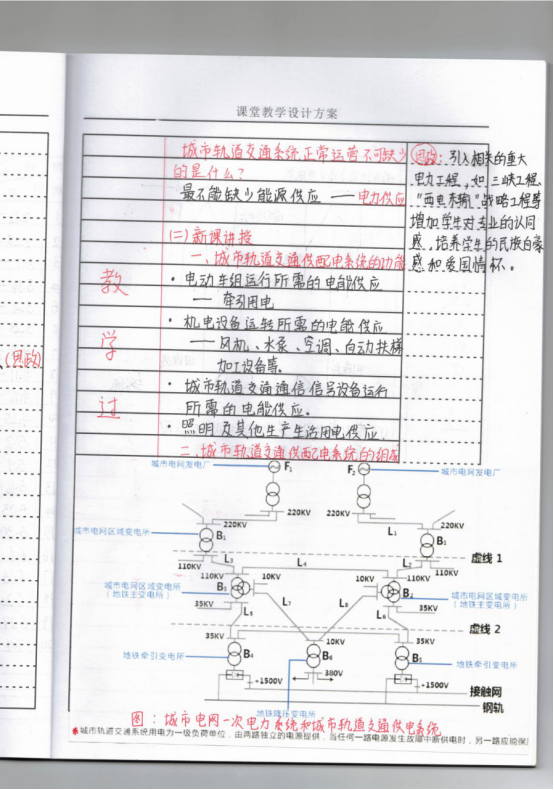 课堂教学设计方案
城市轨道交通系统正常运营不可缺少
的是什么?
最不能缺少能源供应 —— 电力供应
(二)新课讲授
一、城市轨道交通供配电系统的功能
· 电动车组运行所需的电能供应
—— 牵引用电
· 机电设备运转所需的电能供应
—— 风机、水泵、空调、自动扶梯
加工设备等。
· 城市轨道交通通信信号设备运行
所需的电能供应。
· 照明及其他生产生活用电供应.
二、城市轨道交通供配电系统的组成
思政:引入相关的重大
电力工程,如三峡工程、
"西电东输"战略工程等
增加学生对专业的认同
感,培养学生的民族自豪
感和爱国情怀。
教
学
过
(思政)
城市电网发电厂
F₁
F₂
城市电网发电厂
220KV
220KV
220KV
L₁
220KV
城市电网区域变电所
B₁
B₁
虚线 1
L₃
L₄
L₂
110KV
110KV
110KV
110KV
城市电网区域变电所
(地铁主变电所)
B₃
10KV
10KV
B₂
城市电网区域变电所
(地铁主变电所)
35KV
L₇
L₈
35KV
L₅
L₆
虚线 2
35KV
10KV
35KV
地铁牵引变电所
B₄
B₆
B₅
地铁牵引变电所
+1500V
380V
+1500V
接触网
钢轨
地铁降压变电所
图:城市电网一次电力系统和城市轨道交通供电系统
*城市轨道交通系统用电为一级负荷单位,由两路独立的电源提供,当任何一路电源发生故障中断供电时,另一路应能保